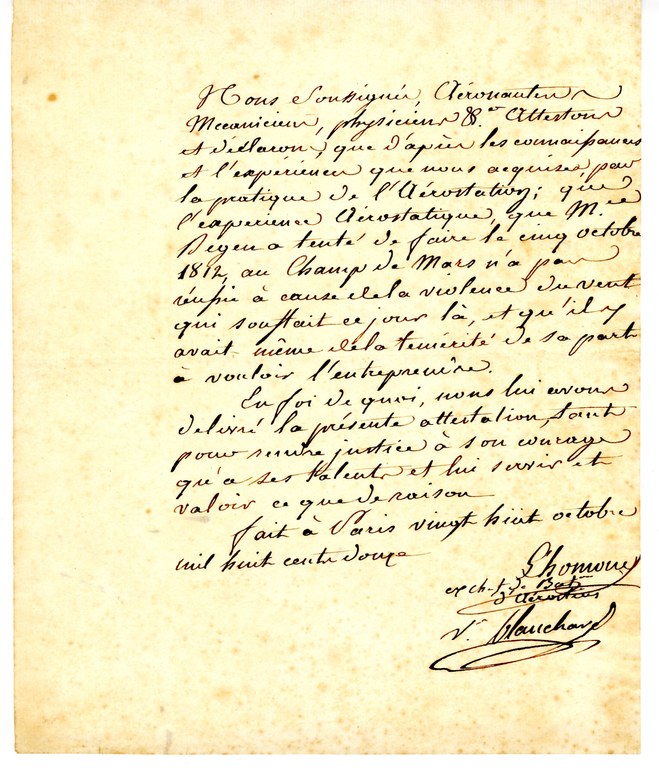 Nous Soussignés, Aéronautes
Mecaniciens, physiciens &.er Attestons
et déclarons, que d'après les connaissances
et l'expérience que nous acquises, par
la pratique de l'Aérostation; que
l'experience Aérostatique, que M.
Degen a tenté de faire le cinq octobre
1812, au Champ de Mars n'a pas
réussie à cause de la violence du vent
qui souflait ce jour là, et qu'il y
avait même de la temérité de sa part
à vouloir l'entreprendre.
En foi de quoi, nous lui avons
delivré la présente attestation, tant
pour rendre justice à son courage
qu'a ses talents et lui servir et
valoir ce que de raison
fait à Paris vingt huit octobre
mil huit cents douze
Lhomond
ex ch. de Bat.
d'Aérostiers
V.e Blanchard